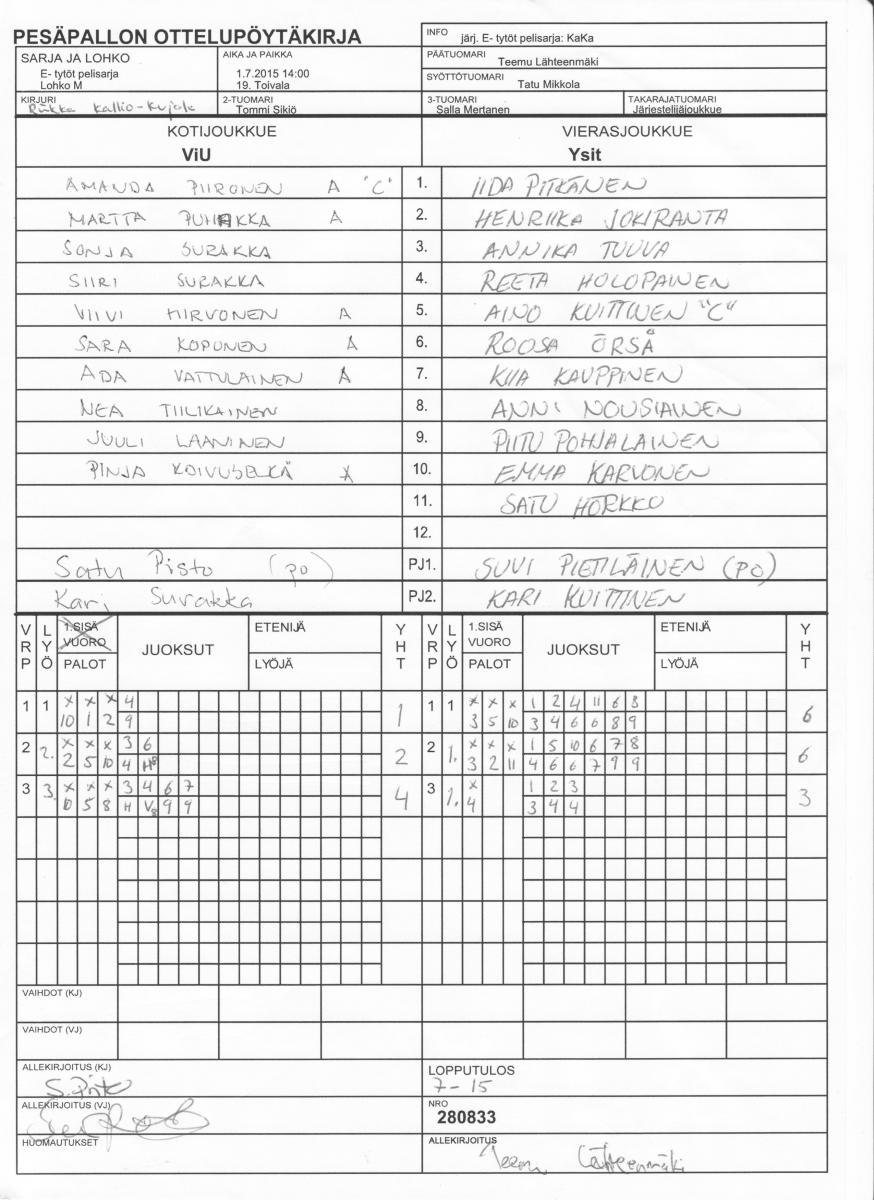 PESÄPALLON OTTELUPÖYTÄKIRJA
INFO järj. E- tytöt pelisarja: KaKa
SARJA JA LOHKO
E- tytöt pelisarja
Lohko M
AIKA JA PAIKKA
1.7.2015 14:00
19. Toivala
PÄÄTUOMARI Teemu Lähteenmäki
SYÖTTÖTUOMARI Tatu Mikkola
KIRJURI
Riikka Kallio-Kujala
2-TUOMARI
Tommi Sikiö
3-TUOMARI
Salla Mertanen
TAKARAJATUOMARI
Järjestelijäjoukkue
KOTIJOUKKUE VIERASJOUKKUE
ViU Ysit
AMANDA PIIRONEN A "C" 1. IIDA PITKÄNEN
MARTTA PUHAKKA A 2. HENRIIKA JOKIRANTA
SONJA SURAKKA 3. ANNIKA TUUVA
SIIRI SURAKKA 4. REETA HOLOPAINEN
VIIVI HIRVONEN A 5. AINO KUITTINEN "C"
SARA KOPONEN A 6. ROOSA ÖRSÅ
ADA VATTULAINEN A 7. KIIA KAUPPINEN
NEA TIILIKAINEN 8. ANNI NOUSIAINEN
JUULI LAANINEN 9. PIITU POHJALAINEN
PINJA KOIVUSELKÄ X 10. EMMA KARVONEN
11. SATU HÖRKKÖ
12.
Satu Pisto (po) PJ1. SUVI PIETILÄINEN (PO)
Kari Surakka PJ2. KARI KUITTINEN
VRP LYÖ 1.SISÄ VUORO PALOT JUOKSUT ETENIJÄ LYÖJÄ YHT VRP LYÖ 1.SISÄ VUORO PALOT JUOKSUT ETENIJÄ LYÖJÄ YHT
1 1 x x x 4 1 1 1 x x x 1 2 4 11 6 8 6
10 1 2 9 3 5 10 3 4 6 6 8 9
2 2. x x x 3 6 2 2 1. x x x 1 5 10 6 7 8 6
2 5 10 4 H8 3 2 11 4 6 6 7 9 9
3 3. x x x 3 4 6 7 4 3 1. x 1 2 3 3
10 5 8 H V8 9 9 4 3 4 4
VAIHDOT (KJ)
VAIHDOT (VJ)
ALLEKIRJOITUS (KJ)
S. Pisto
LOPPUTULOS
7-15
ALLEKIRJOITUS (VJ)
NRO
280833
HUOMAUTUKSET
ALLEKIRJOITUS
Teemu Lähteenmäki